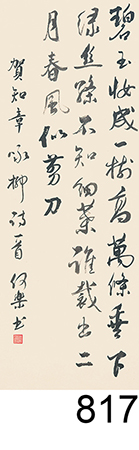 碧玉妝成一樹高萬條垂下
綠絲絛不知細葉誰裁出二
月春風似剪刀
賀知章詠柳詩首 何樂書
817